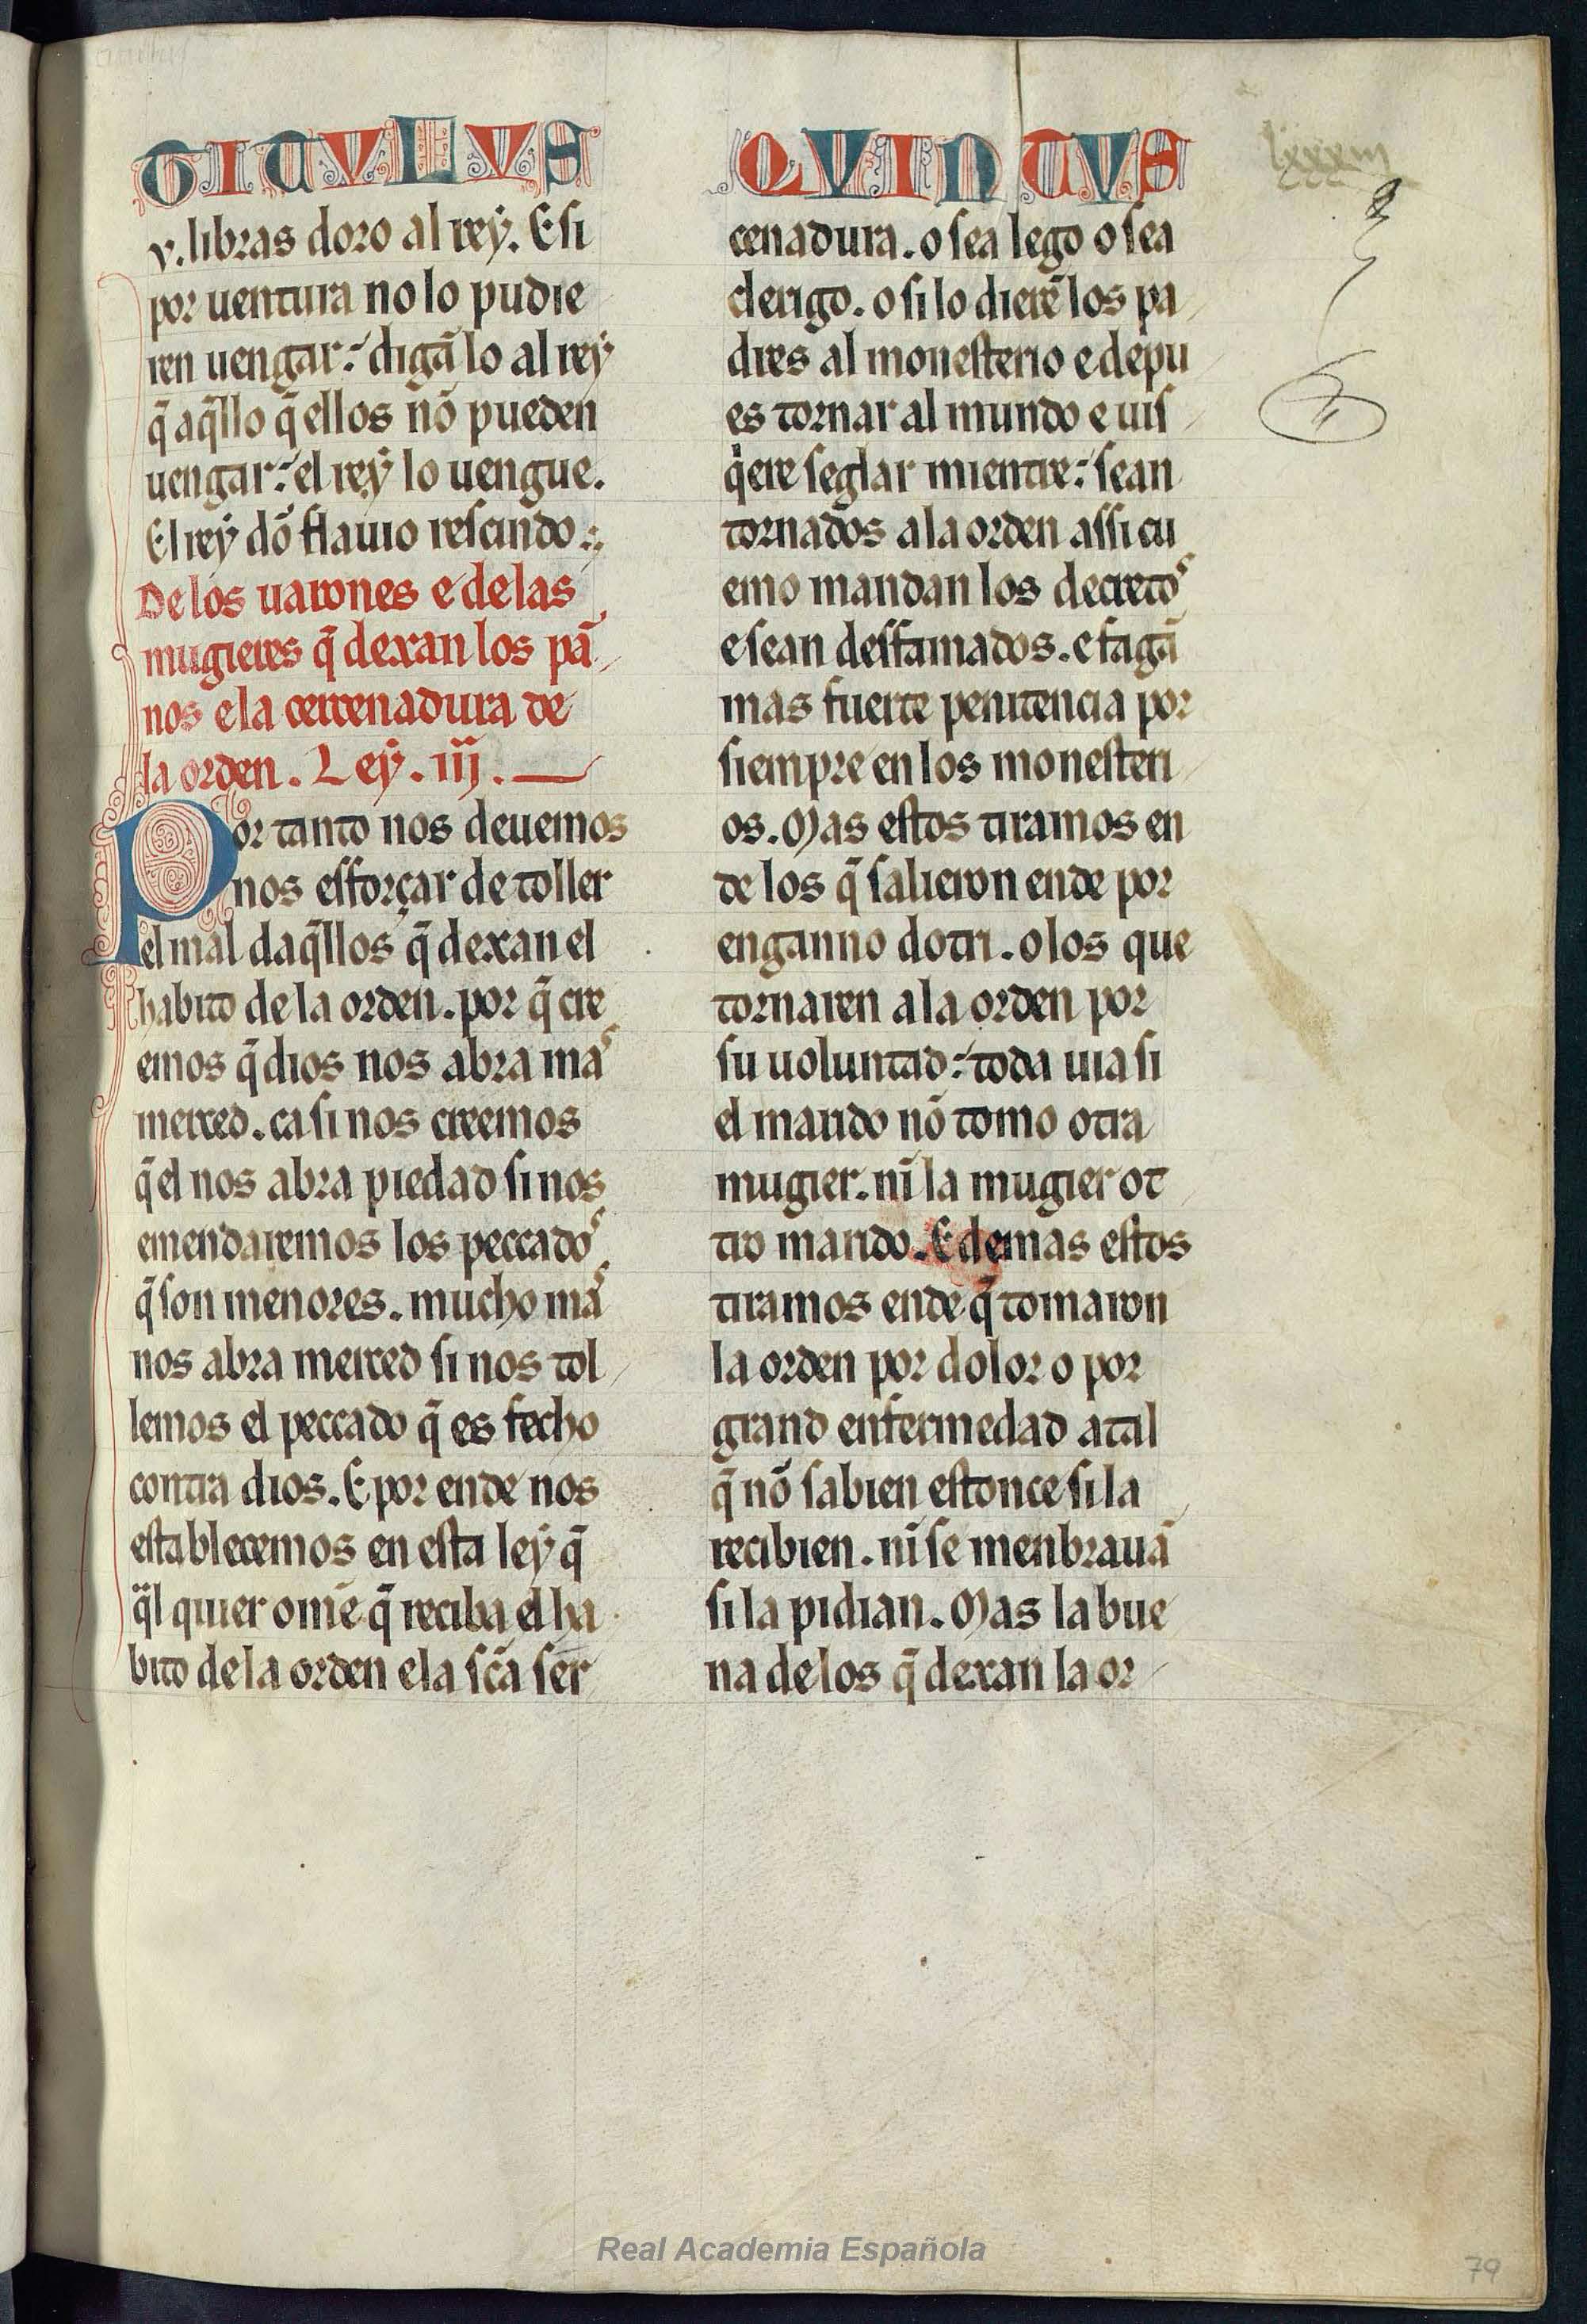 TITULUS QUINTUS
v. libras doro al rey. E si
por uentura no lo pudie
ren uengar: digã lo al rey
q̃ aq̃llo q̃ ellos nõ pueden
uengar: el rey lo uengue.
El rey dõ flauio rescindo.
De los uarones e de las
mugieres q̃ dexan los pã
nos e la cercenadura de
la orden. Ley. iij.
Por tanto nos deuemos
nos efforçar de toller
el mal daq̃llos q̃ dexan el
habito de la orden. por q̃ cre
emos q̃ dios nos abra mas
merced. ca si nos creemos
q̃ el nos abra piedad si nos
emendaremos los peccados
q̃ son menores. mucho mas
nos abra merced si nos tol
lemos el peccado q̃ es fecho
contra dios. E por ende nos
establecemos en esta ley q̃
q̃l quier omẽ q̃ reciba el ha
bito de la orden e la sc̃a ser
cenadura. o sea lego o sea
clerigo. o si lo dierẽ los pa
dres al monesterio e depu
es tornar al mundo e uis
q̇ere seglar mientre: sean
tornados a la orden assi cu
emo mandan los decretos
e sean desfamados. e fagã
mas fuerte penitencia por
siempre en los monesteri
os. Mas estos tiramos en
de los q̃ salieron ende por
enganno dotri. o los que
tornaren a la orden por
su uoluntad: toda uia si
el marido nõ tomo otra
mugier. nĩ la mugier ot
tro marido. E demas estos
tiramos ende q̃ tomaron
la orden por dolor o por
grand enfermedad a tal
q̃ nõ sabien estonce si la
recibien. nĩ se menbrauã
si la pidian. Mas la bue
na de los q̃ dexan la or
lxxxiij
Real Academia Española
79